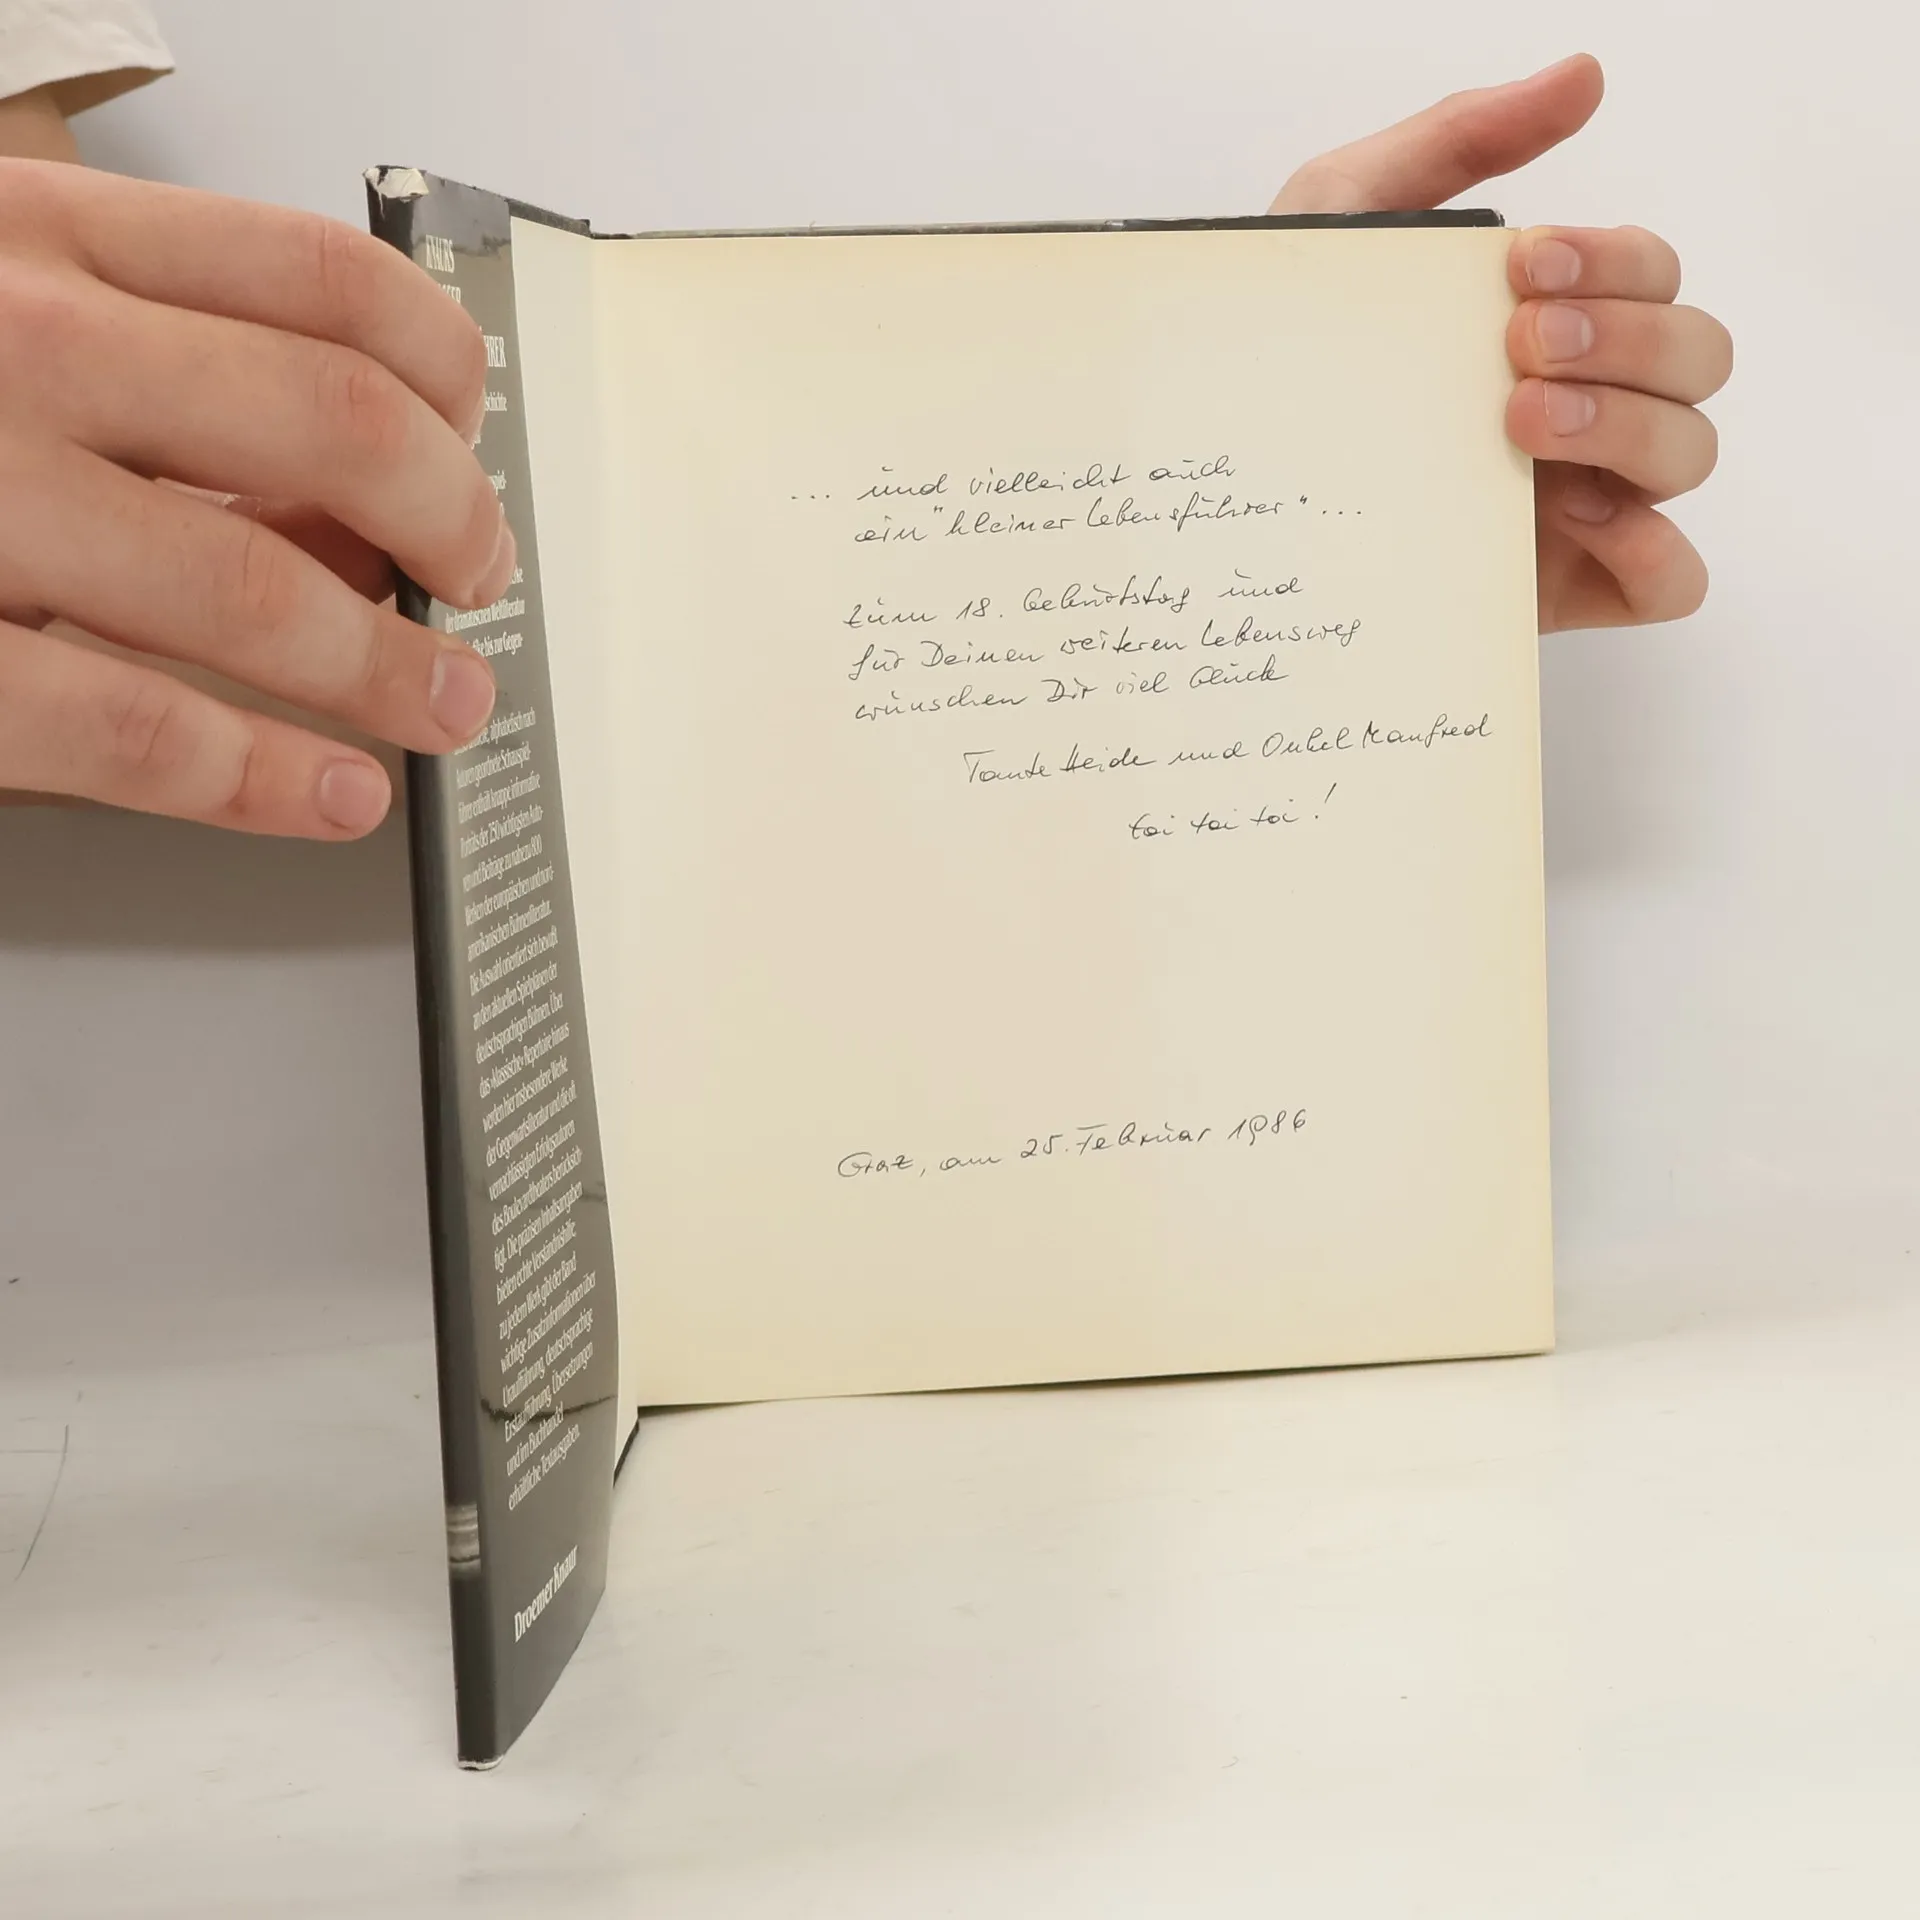 KNAURS
schichte
der dramatischen Weltliteratur
bis zur Gegen-
alphabetisch nach
Autoren geordnete Schauspiel-
führer enthält knappe informative
Porträts der 250 wichtigsten Auto-
ren und Beiträge zu nahezu 800
Werken der europäischen und nord-
amerikanischen Bühnenliteratur.
Die Auswahl orientiert sich bewußt
an den aktuellen Spielplänen der
deutschsprachigen Bühnen. Über
das »klassische« Repertoire hinaus
werden hier insbesondere Werke
der Gegenwartsliteratur und die oft
vernachlässigten Erfolgsautoren
des Boulevardtheaters berücksich-
tigt. Die präzisen Inhaltsangaben
bieten echte Verständnishilfe,
zu jedem Werk gibt der Band
wichtige Zusatzinformationen über
Uraufführung, deutschsprachige
Erstaufführung, Übersetzungen
und im Buchhandel
erhältliche Textausgaben.
Droemer Knaur
... und vielleicht auch
ein "kleiner Lebensführer" ...
Zum 18. Geburtstag und
für Deinen weiteren Lebensweg
wünschen Dir viel Glück
Tante Heide und Onkel Manfred
toi toi toi!
Graz, am 25. Februar 1986